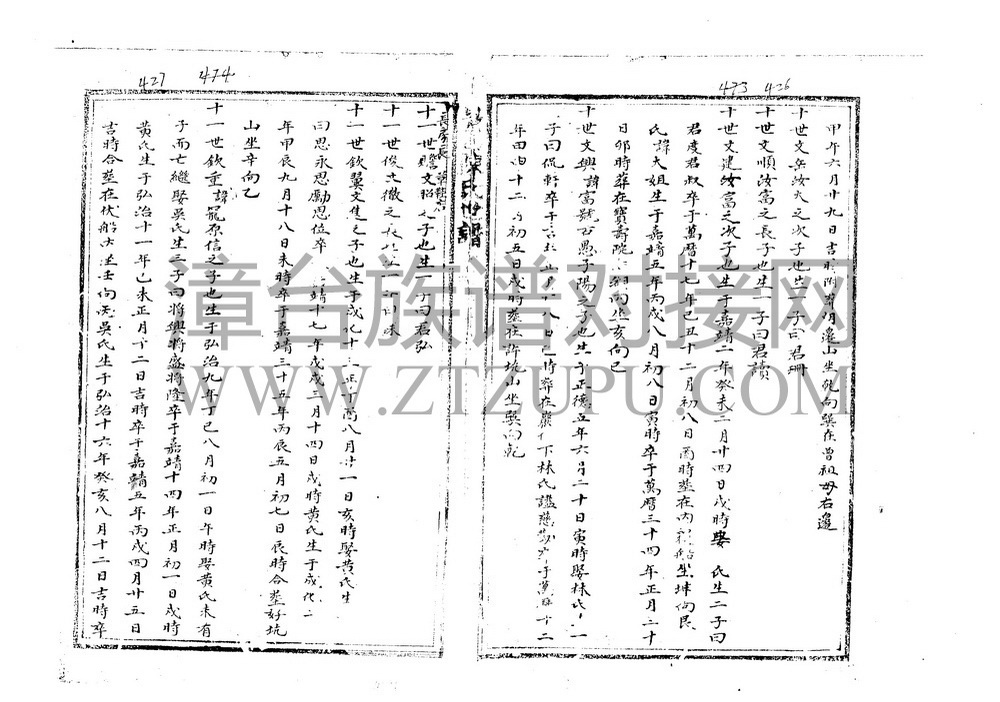 473 426
甲午六月廿九日吉時附葬胡邊山坐乾向巽在曾祖母右邊
十世文岳汝大之次子也生一子曰君珊
十世文順汝富之長子也生一子曰君讀
十世文建汝富之次子也生于嘉靖二年癸未二月廿四日戌時娶 氏生二子曰
君度君叔卒于萬曆十七年己丑十二月初八日酉時塟在內 船坐坤向艮
氏諱大姐生于嘉靖五年丙戌八月初八日寅時卒于萬曆三十四年正月二十
日卯時葬在寶壽院 向坐亥向巳
十世文興諱富號古愚子陽之子也生于正德五年六月二十日寅時娶林氏生一
子曰侃軒卒于 八日巳時葬在 下林氏謚慈勤卒于萬曆十二
年 四十二月初五日戌時塟在許坑山坐巽向乾
474 427
長房長
十一世 文招之子也生一子曰君弘
十一世俊 徹之長
十一世欽翼文 之子也生于成化十三年丁酉八月廿一日亥時娶黃氏生
曰思永思勵思位卒 靖十七年戊戌三月十四日戌時黃氏生于成化二
年甲辰九月十八日未時卒于嘉靖三十五年丙辰五月初七日辰時合塟好坑
山坐辛向乙
十一世欽重諱寵原信之子也生于弘治九年丁巳八月初一日午時娶黃氏未有
子而亡繼娶吳氏生三子曰將興將盛將隆卒于嘉靖十四年正月初一日戌時
黃氏生于弘治十一年己未正月十二日吉時卒于嘉靖五年丙戌四月廿五日
吉時合塟在伏船 坐壬向丙吳氏生于弘治十六年癸亥八月十二日吉時卒
漳台族谱对接网
WWW.ZTZUPU.COM